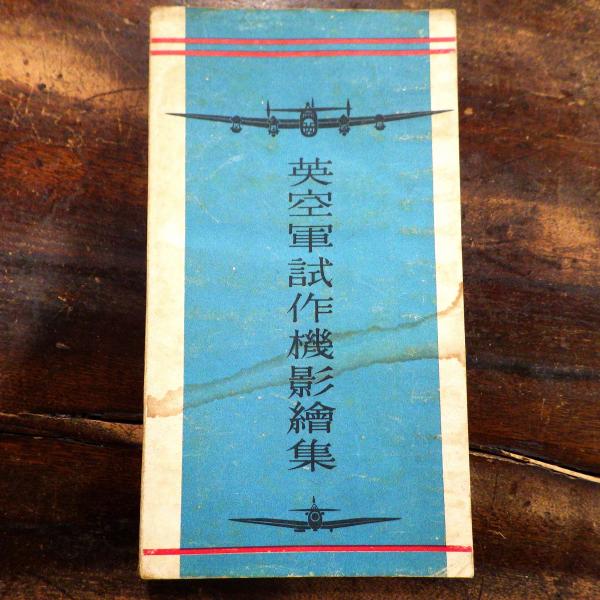 英空軍試作機影繪集